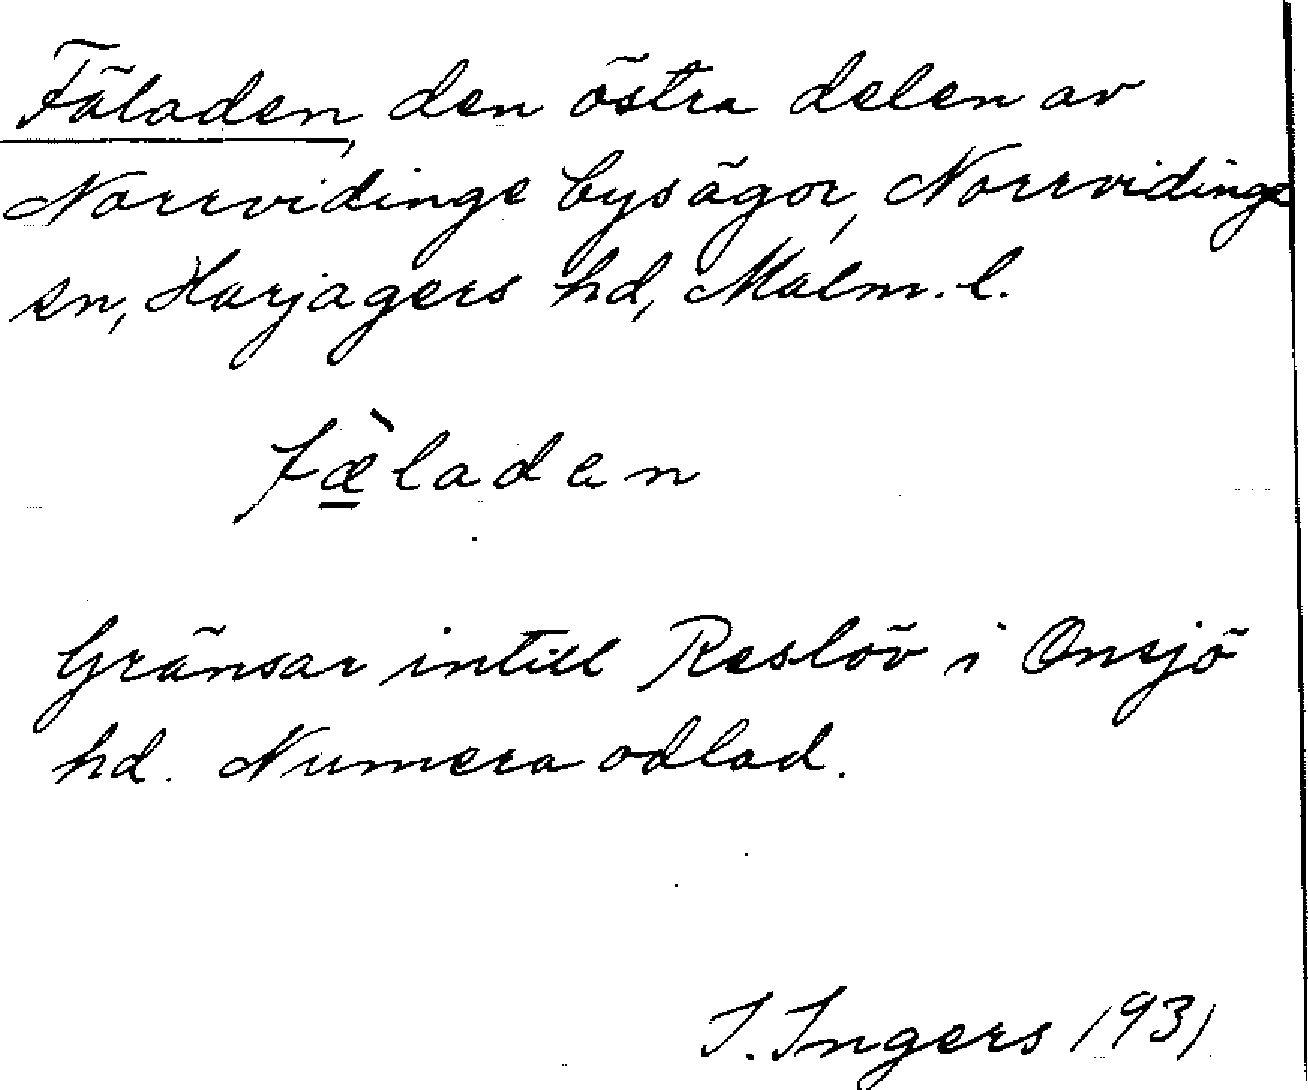 Fäladen, den östra delen av
Norrvidinge bys ägor, Norrvidinge
sn, Harjagers hd, Malm. l.
fæ̱̀laden
Gränsar intill Reslöv i Onsjö
hd. Numera odlad.
I. Ingers 1931